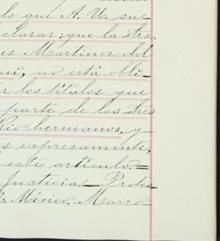 lo que A. U. su-
clarar: que la tra-
es Martinez del
no está obli-
r los títulos que
parte de los tres
Rio hermanos, y
s expresamente,
este artículo.=
Justicia.- Prote
México, Marzo